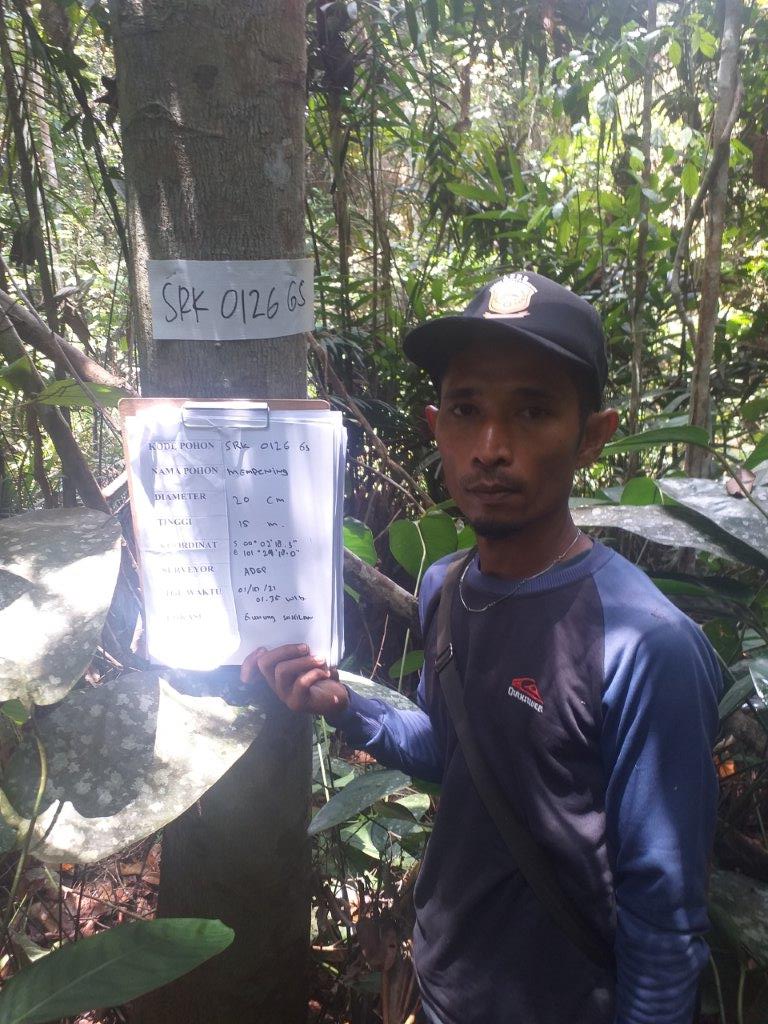 SRK 0126 GS
KODE POHON SRK 0126 GS
NAMA POHON Mempening
DIAMETER 20 Cm
TINGGI 15 m.
KOORDINAT S 00° 02' 18.3"
E 101° 24' 18.0"
SURVEYOR
TGL/WAKTU 01/07/21
01.35 WIB
LOKASI Gunung
QUIKSILVER